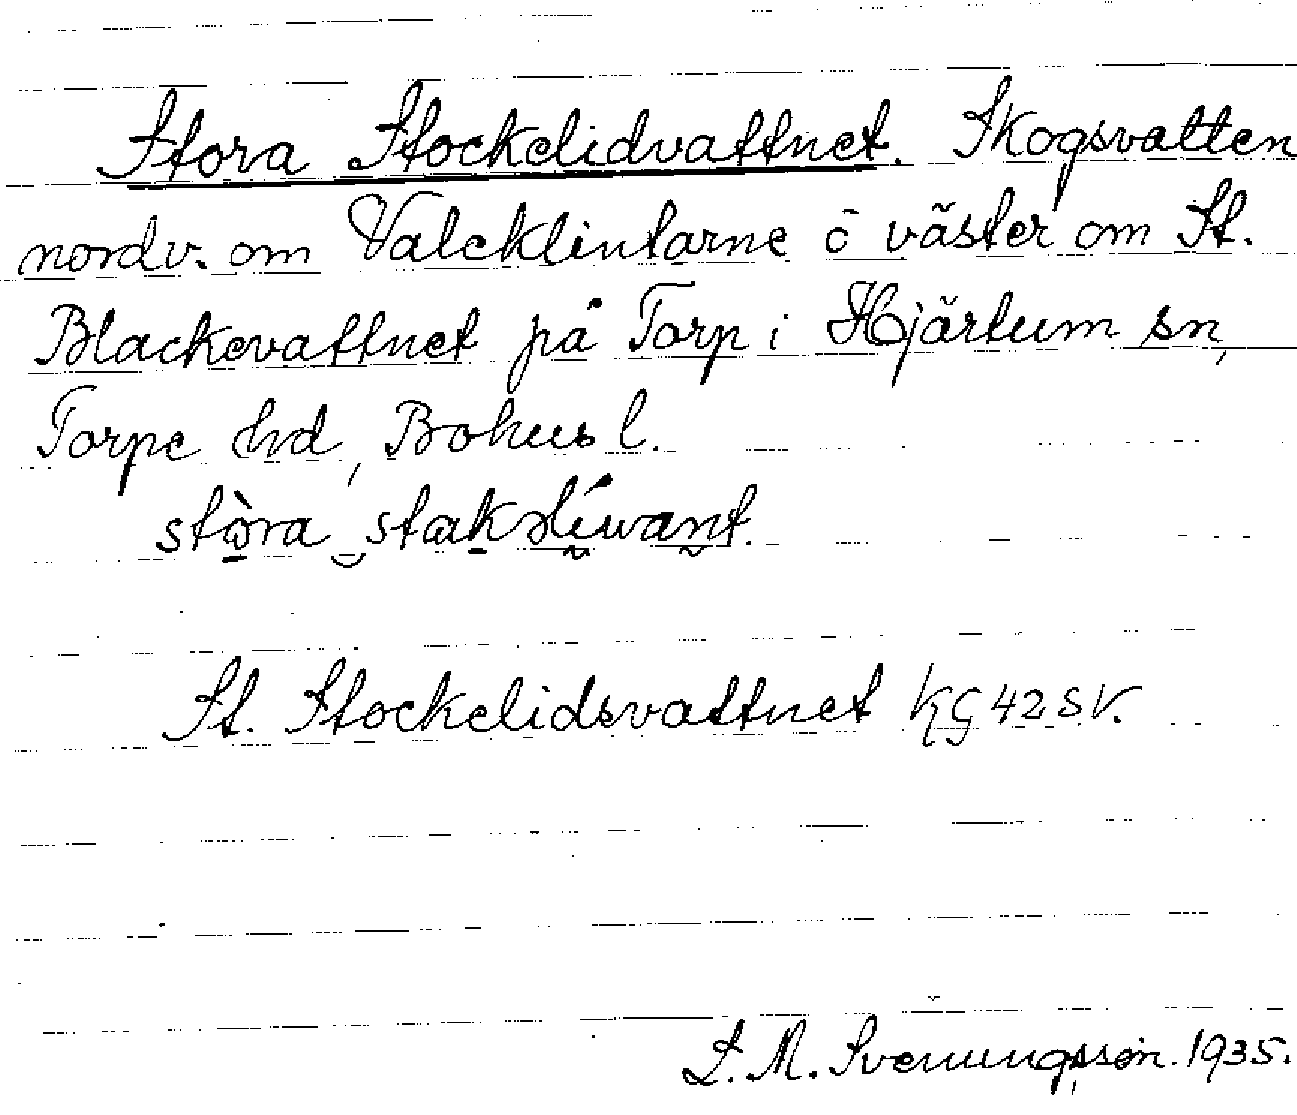 Stora Stockelidvattnet. Skogsvatten
nordv. om Valeklintarne ö väster om St.
Blackevattnet på Torp i Hjärtum sn,
Torpe hd, Bohusl.
stòra stakslíwant.
St. Stockelidsvattnet KG 42 SV.
L. M. Svenungsson. 1935.